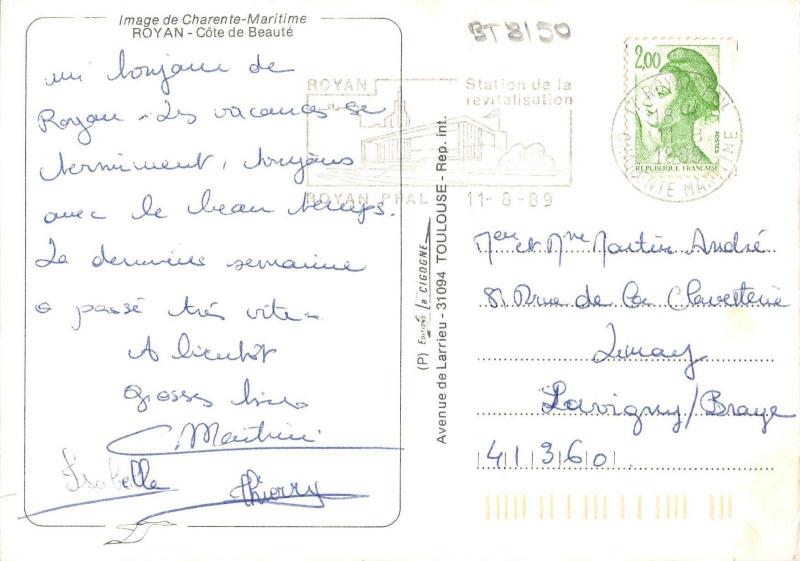 Image de Charente-Maritime
ROYAN - Côte de Beauté
un bonjour de
Royan. Les vacances se
terminent, toujours
avec le beau temps.
La dernière semaine
a passé très vite
A bientôt
grosses bises
Martine
Isabelle
Thierry
BT 8150
ROYAN
Station de la
revitalisation
ROYAN PPAL
11-8-89
2,00
POSTES
REPUBLIQUE FRANÇAISE
(P) Editions la CIGOGNE
Avenue de Larrieu - 31094 TOULOUSE - Rep. int.
Mer et Mme Martin André
8 Rue de la
Lunay
Savigny/Braye
41360